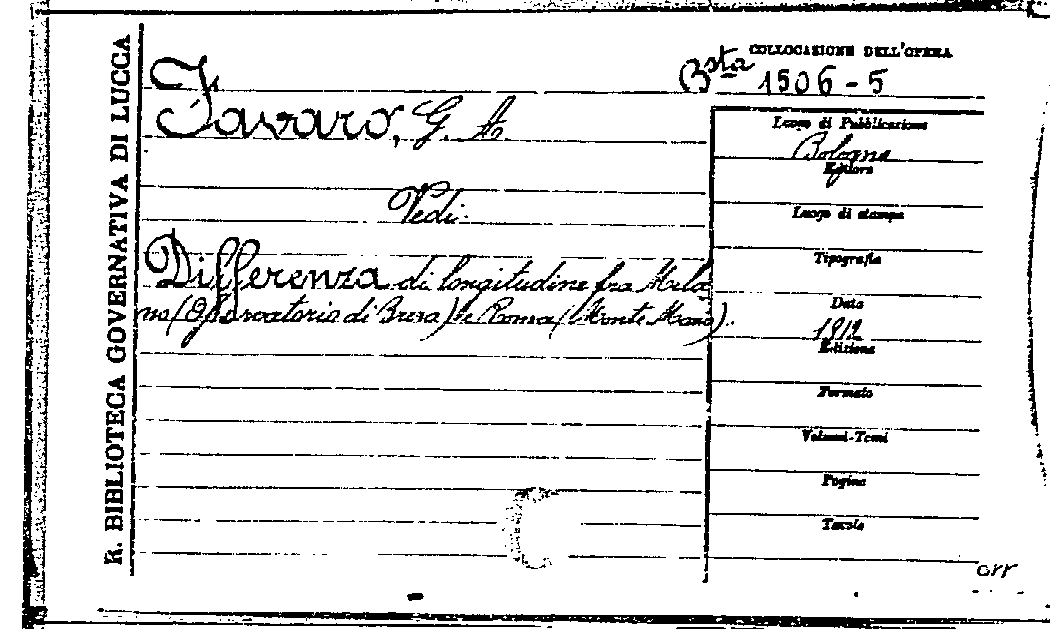 R. BIBLIOTECA GOVERNATIVA DI LUCCA
COLLOCAZIONE DELL'OPERA
Bsta 1506-5
Favaro, G. A.
Vedi:
Differenza di longitudine fra Mila
no (Osservatorio di Brera) e Roma (Monte Mario).
Luogo di Pubblicazione
Bologna
Editore
Luogo di stampa
Tipografia
Data
1912
Edizione
Formato
Volumi-Tomi
Pagine
Tavole
orr